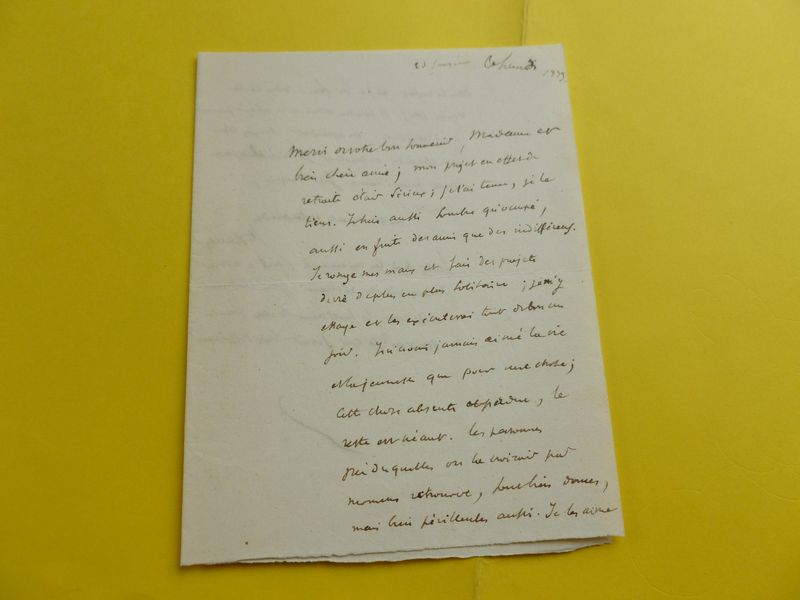 Ce Lundi 1839
Merci de votre bon souvenir, Madame et
bien chère amie; mon projet en effet de
retraite était sérieux; je l'ai tenu, je le
tiens. Je suis aussi sombre qu'occupé,
aussi en fuite des amis que des indifférens.
Je ronge mes mais et fais des projets
de vie de plus en plus solitaire; je m'y
essaye et les exécuterai tout de bon un
jour. Je n'avais jamais aimé la vie
et la jeunesse que pour une chose;
cette chose absente et perdue, le
reste est néant. Les personnes
près desquelles on la croirait par
momens retrouver, sont bien douces,
mais bien périlleuses aussi. Je les aime